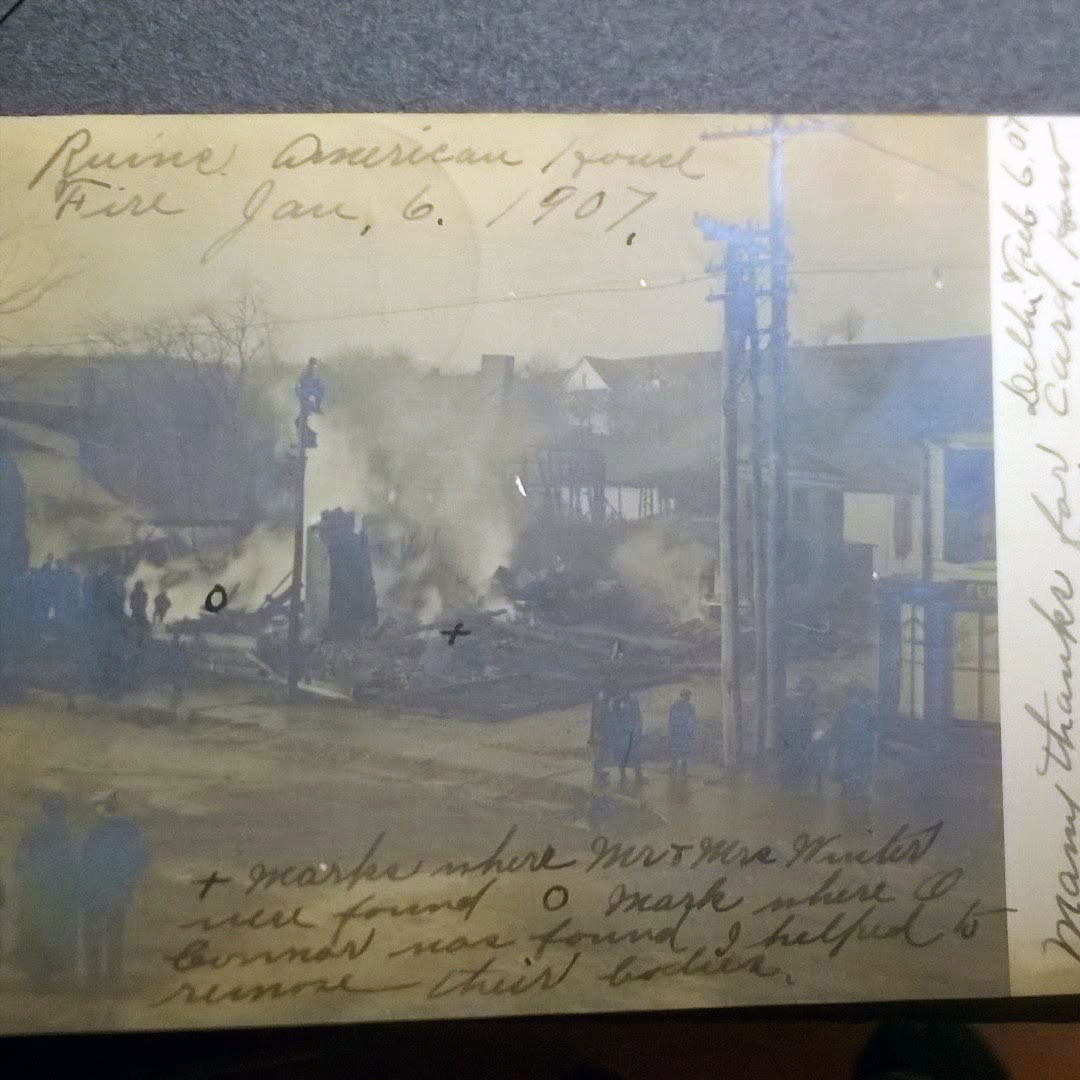 Ruins American House
Fire Jan, 6. 1907,
+ marks where Mr & Mrs Winter
were found O Mark where O
Connor was found, I helped to
remove their bodies.
Delhi Feb 6. 07
Many thanks for card, How